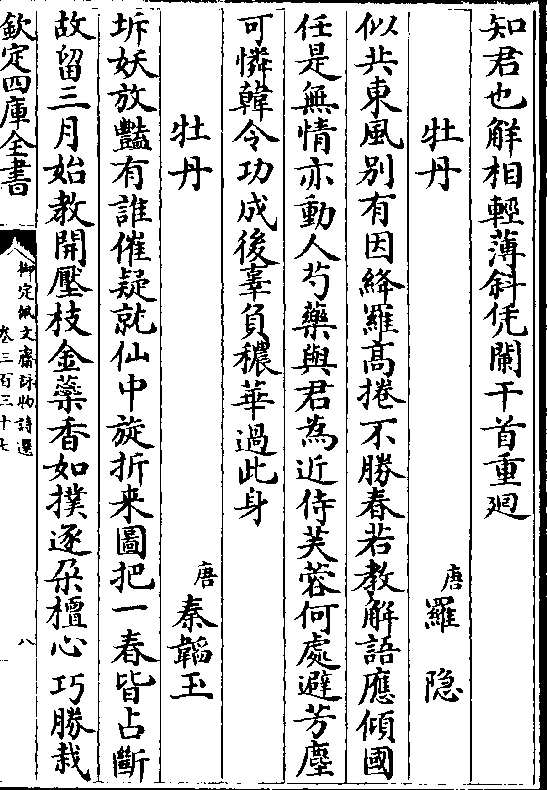 知君也解相輕薄斜凭闌干首重廻
牡丹
唐羅隐
似共東風别有因絳羅髙捲不勝春若教解語應傾國
任是無情亦動人芍藥與君為近侍芙蓉何處避芳塵
可憐韓令功成後辜負穠華過此身
牡丹
唐秦韜玉
坼妖放豔有誰催疑就仙中旋折来圖把一春皆占斷
故留三月始教開壓枝金蘂香如撲逐朶檀心巧勝栽
欽定四庫全書
御定佩文齋詠物詩選
卷三百三十七
八